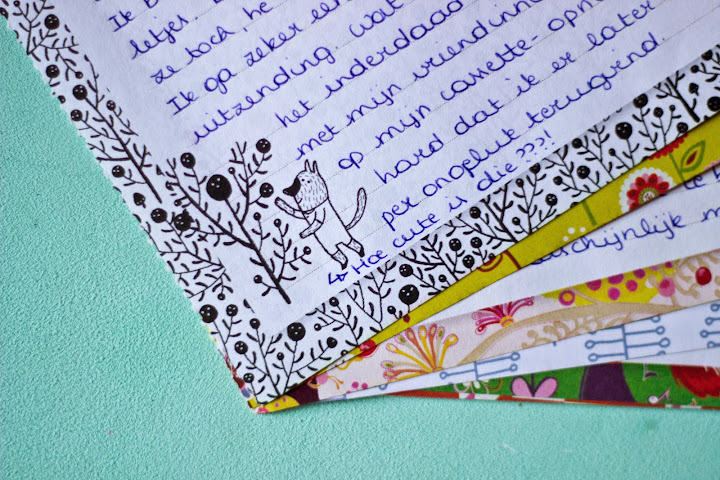 Ik b
letjes
ze toch, he
Ik ga zeker een
uitzending wat
het inderdaad
met mijn vriendinne
op mijn cassette-opn
hard dat ik er later
per ongeluk terugvind.
↳ Hoe cute is die???!
schijnlijk m